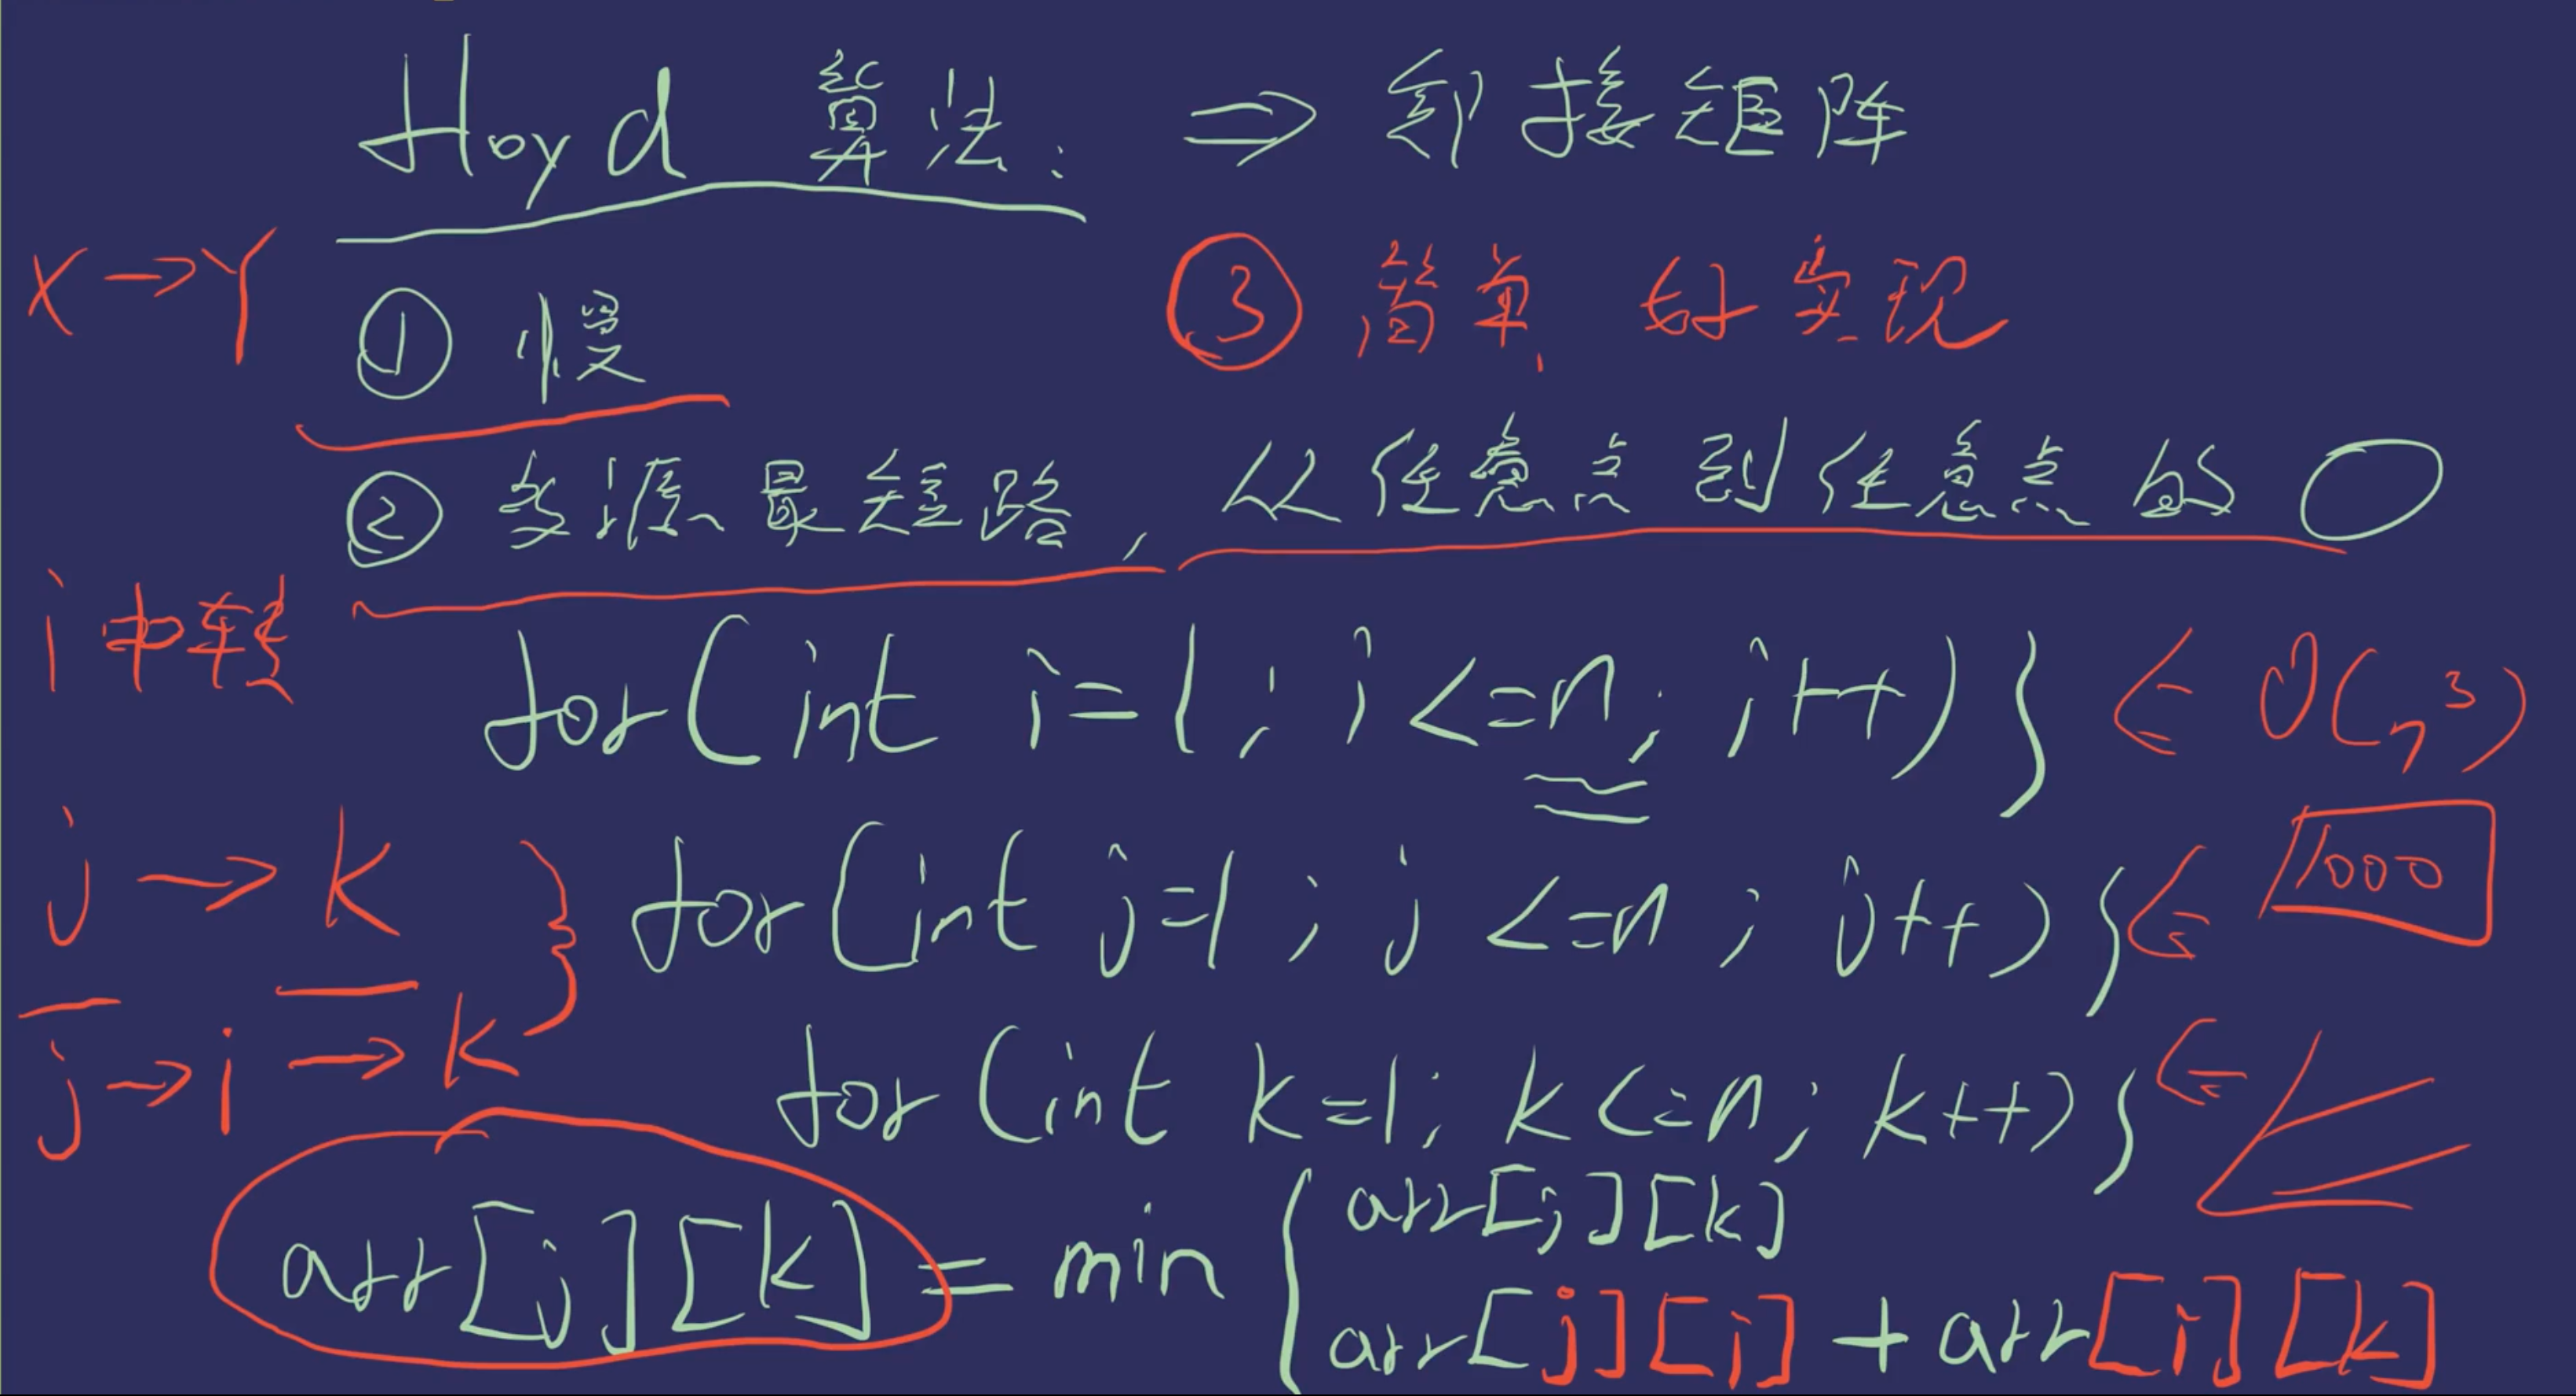 Floyd 算法: ⇒ 邻接矩阵
X → Y
① 慢
③ 简单, 好实现
② 多源最短路, 从任意点到任意点的○
i 中转
for(int i=1; i<=n; i++){ ⇐ O(n³)
j → k
for(int j=1; j<=n; j++){ ⇐ 1000
j → i → k
for(int k=1; k<=n; k++){ ⇐
arr[j][k] = min { arr[j][k]
arr[j][i] + arr[i][k]